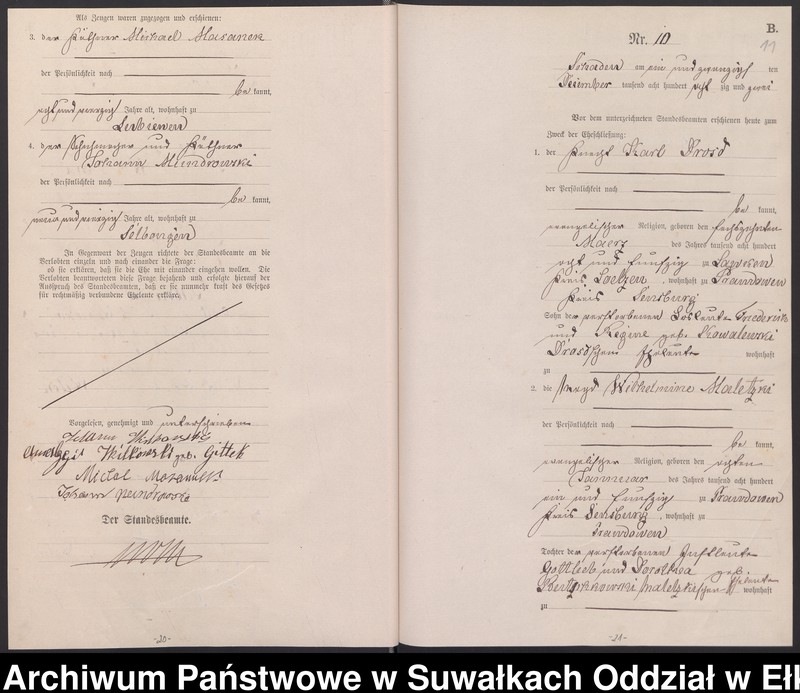 Als Zeugen waren zugezogen und erschienen:
3. der Käthner Michael Masanek
der Persönlichkeit nach
be kannt,
acht und vierzig Jahre alt, wohnhaft zu
Lubiewen
4. der und Käthner
Johann Mundrowski
der Persönlichkeit nach
be kannt,
neun und vierzig Jahre alt, wohnhaft zu
Selbongen
In Gegenwart der Zeugen richtete der Standesbeamte an die
Verlobten einzeln und nach einander die Frage:
ob sie erklären, daß sie die Ehe mit einander eingehen wollen. Die
Verlobten beantworteten diese Frage bejahend und erfolgte hierauf der
Ausspruch des Standesbeamten, daß er sie nunmehr kraft des Gesetzes
für rechtmäßig verbundene Eheleute erkläre.
Vorgelesen, genehmigt und unterschrieben
Witkowski geb. Gittek
Johann
Der Standesbeamte.
-20-
B.
11
Nr. 10
am ein und zwanzig ten
Dezember tausend acht hundert acht zig und zwei
Vor dem unterzeichneten Standesbeamten erschienen heute zum
Zweck der Eheschließung:
1. der Knecht Karl Drosd
der Persönlichkeit nach
be kannt,
evangelischer Religion, geboren den sechszehnten
Maerz des Jahres tausend acht hundert
acht und fünfzig zu
Kreis Loetzen, wohnhaft zu Prawdowen
Kreis Sensburg
Sohn der verstorbenen Losleute Friedrich
und Regine geb. Kowalewski
Drosdschen Eheleute wohnhaft
zu
2. die Magd Wilhelmine Maletzki
der Persönlichkeit nach
be kannt,
evangelischer Religion, geboren den achten
Januar des Jahres tausend acht hundert
ein und fünfzig zu Prawdowen
Kreis Sensburg, wohnhaft zu
Prawdowen
Tochter der verstorbenen Instleute
Gottlieb und Dorothea geb.
Maletzkischen Eheleute wohnhaft
zu
-21-
Archiwum Państwowe w Suwałkach Oddział w Ełk